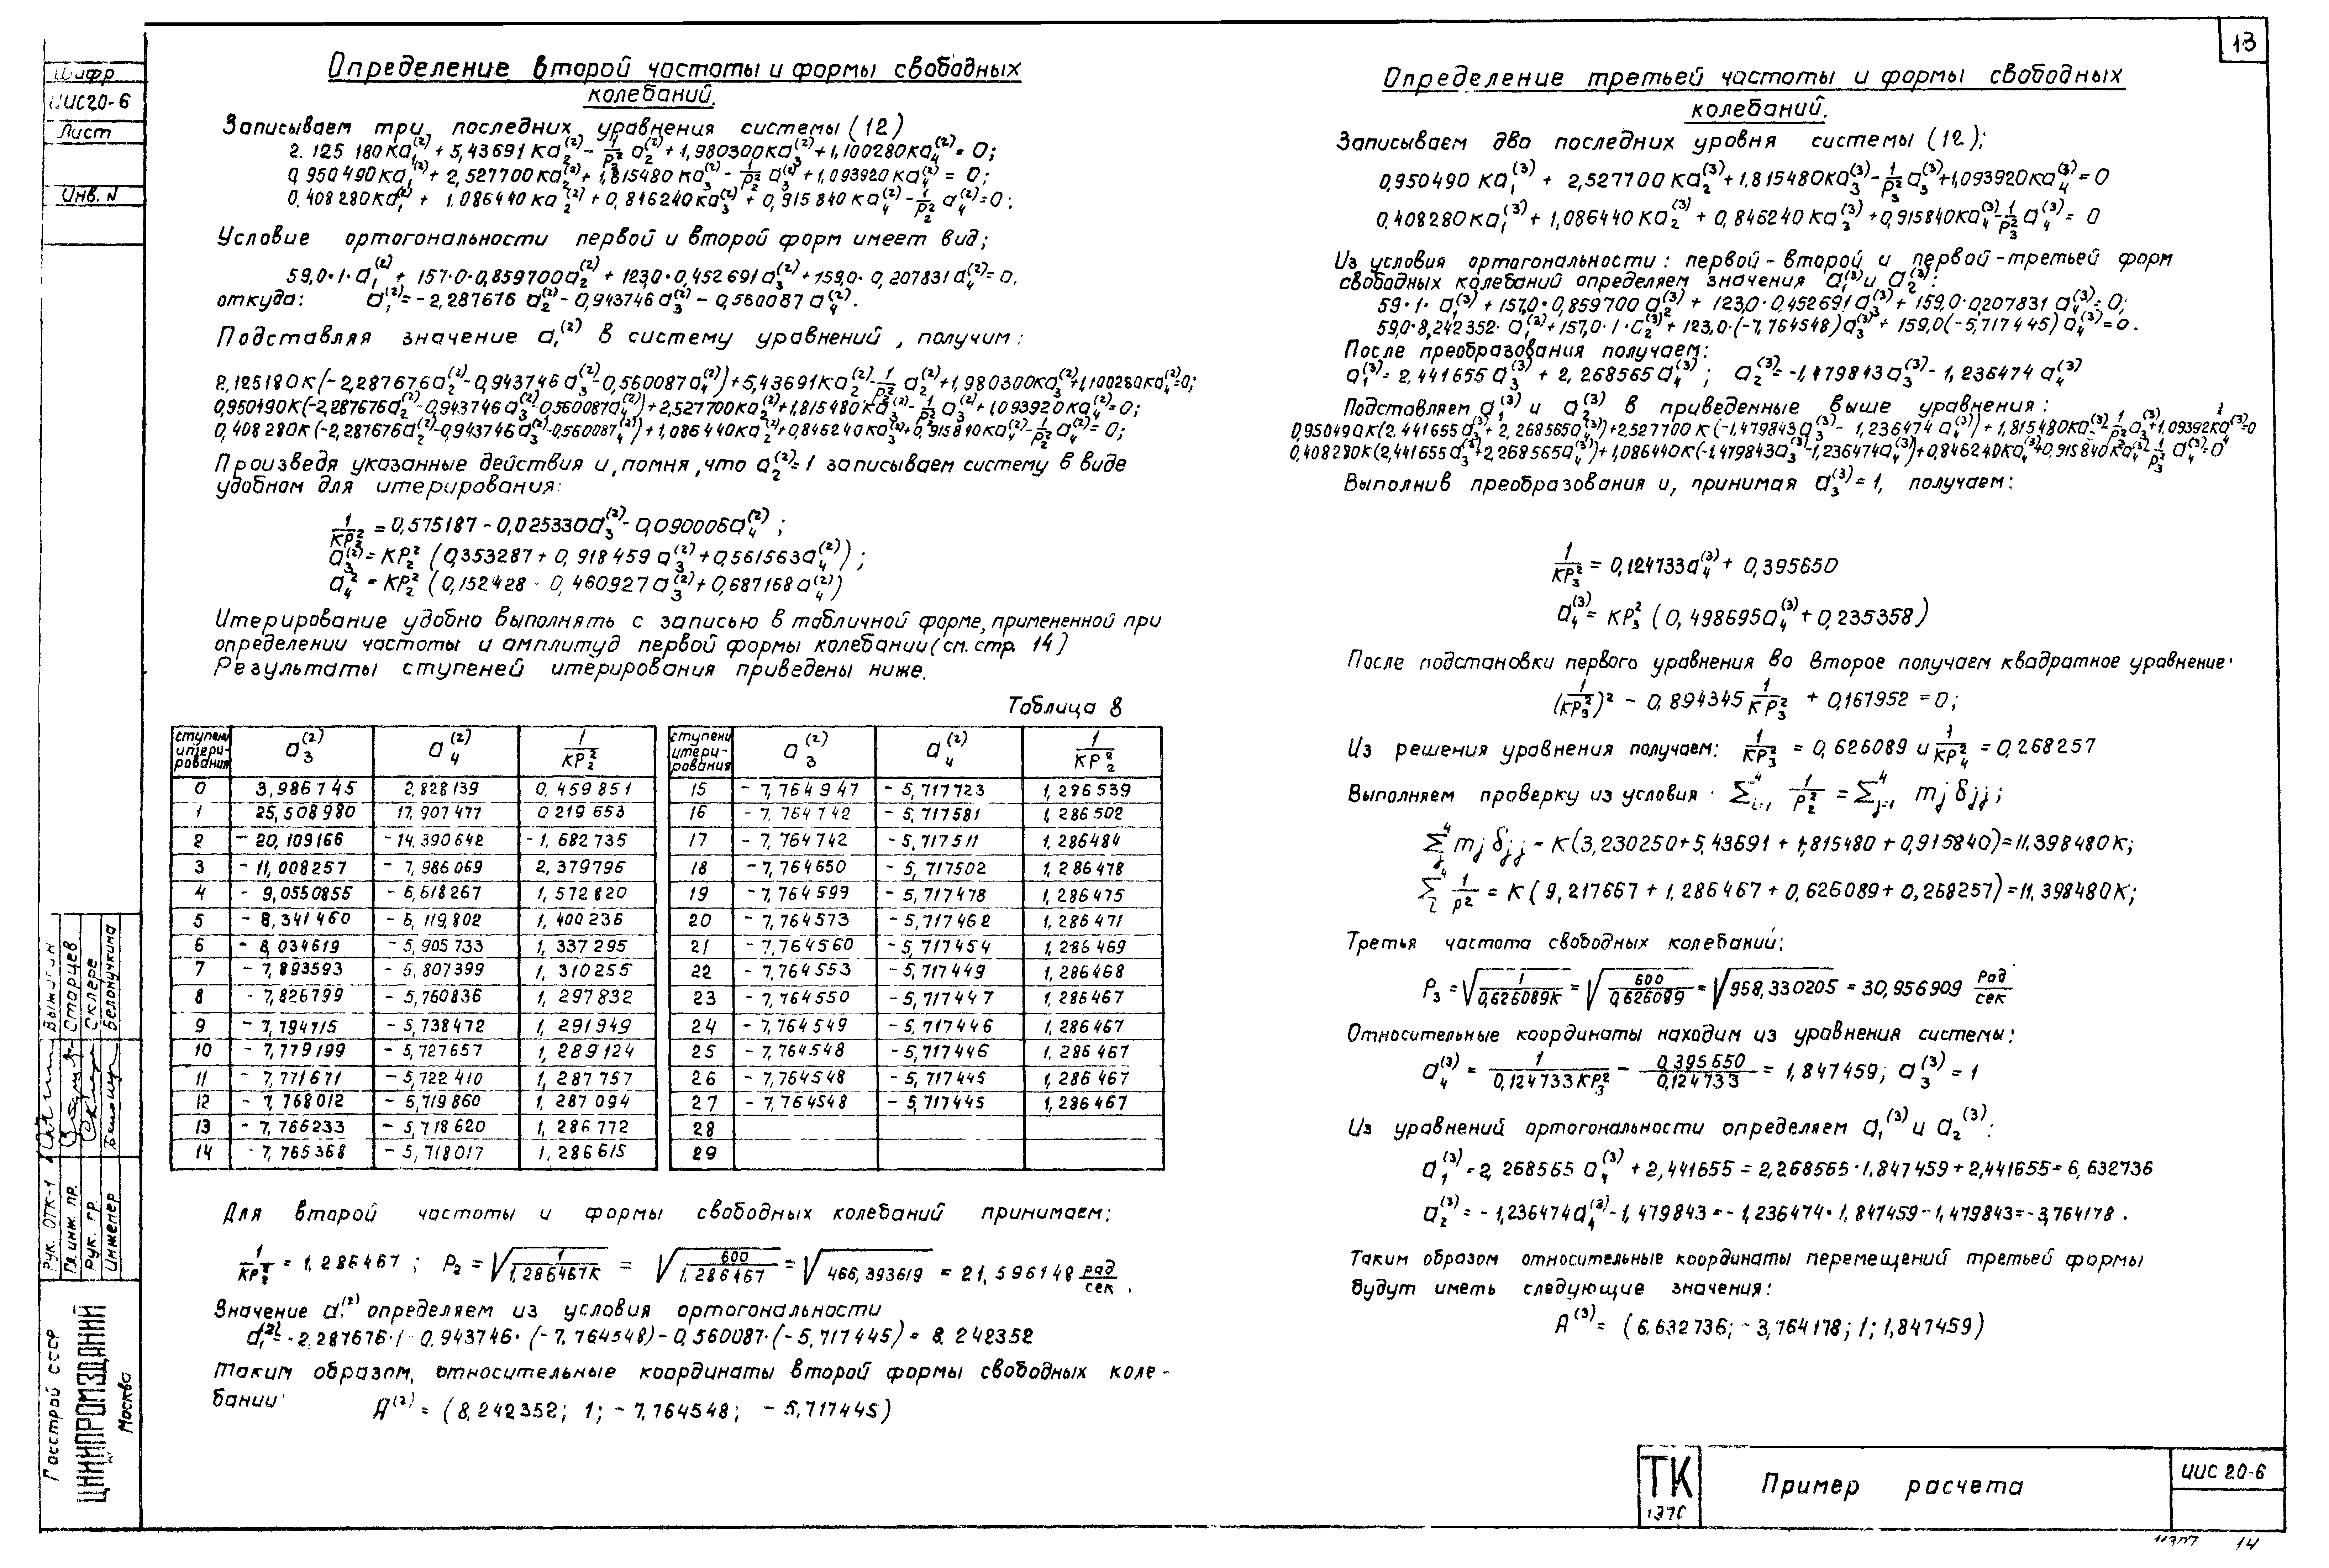 13
Шифр
ИИС20-6
Лист
Инв. N
Определение второй частоты и формы свободных
колебаний.
Записываем три последних уравнения системы (12)
2.125 180Ka₁⁽²⁾ + 5,43691 Ka₂⁽²⁾ - 1/P₂² a₂⁽²⁾ + 1,980300Ka₃⁽²⁾ + 1,100280Ka₄⁽²⁾ = 0;
0,950490Ka₁⁽²⁾ + 2,527700Ka₂⁽²⁾ + 1,815480 Ka₃⁽²⁾ - 1/P₂² a₃⁽²⁾ + 1,093920Ka₄⁽²⁾ = 0;
0,408280Ka₁⁽²⁾ + 1.086440 Ka₂⁽²⁾ + 0,846240Ka₃⁽²⁾ + 0,915840Ka₄⁽²⁾ - 1/P₂² a₄⁽²⁾ = 0;
Условие ортогональности первой и второй форм имеет вид;
59,0·1·a₁⁽²⁾ + 157·0·0,859700a₂⁽²⁾ + 123,0·0,452691a₃⁽²⁾ + 159,0·0,207831a₄⁽²⁾ = 0.
откуда: a₁⁽²⁾ = -2,287676 a₂⁽²⁾ - 0,943746a₃⁽²⁾ - 0,560087 a₄⁽²⁾.
Подставляя значение a₁⁽²⁾ в систему уравнений, получим:
2,125180K(-2,287676a₂⁽²⁾-0,943746a₃⁽²⁾-0,560087a₄⁽²⁾)+5,43691Ka₂⁽²⁾-1/P₂² a₂⁽²⁾+1,980300Ka₃⁽²⁾+1,100280Ka₄⁽²⁾=0;
0,950490K(-2,287676a₂⁽²⁾-0,943746a₃⁽²⁾-0,560087a₄⁽²⁾)+2,527700Ka₂⁽²⁾+1,815480Ka₃⁽²⁾-1/P₂² a₃⁽²⁾+1,093920Ka₄⁽²⁾=0;
0,408280K(-2,287676a₂⁽²⁾-0,943746a₃⁽²⁾-0,560087a₄⁽²⁾)+1,086440Ka₂⁽²⁾+0,846240Ka₃⁽²⁾+0,915840Ka₄⁽²⁾-1/P₂² a₄⁽²⁾=0;
Произведя указанные действия и, помня, что a₂⁽²⁾=1 записываем систему в виде
удобном для итерирования:
1/KP₂² = 0,575187 - 0,025330a₃⁽²⁾ - 0,090006a₄⁽²⁾;
a₃⁽²⁾ = KP₂² (0,353287 + 0,918459 a₃⁽²⁾ + 0,561563a₄⁽²⁾);
a₄² = KP₂² (0,152428 - 0,460927a₃⁽²⁾ + 0,687168a₄⁽²⁾)
Итерирование удобно выполнять с записью в табличной форме, примененной при
определении частоты и амплитуд первой формы колебании (см. стр. 14)
Результаты ступеней итерирования приведены ниже.
Таблица 8
ступени итери- рования a₃⁽²⁾ a₄⁽²⁾ 1/KP₂² ступени итери- рования a₃⁽²⁾ a₄⁽²⁾ 1/KP₂²
0 3,986745 2,828139 0,459851 15 -7,764947 -5,717723 1,286539
1 25,508980 17,907477 0 219 653 16 -7,764742 -5,717581 1,286502
2 -20,109166 -14,390642 -1,682735 17 -7,764742 -5,717511 1,286484
3 -11,008257 -7,986069 2,379796 18 -7,764650 -5,717502 1,286478
4 -9,0550855 -6,618267 1,572820 19 -7,764599 -5,717478 1,286475
5 -8,341460 -6,119,802 1,400236 20 -7,764573 -5,717462 1,286471
6 -8,034619 -5,905733 1,337295 21 -7,764560 -5,717454 1,286469
7 -7,893593 -5,807399 1,310255 22 -7,764553 -5,717449 1,286468
8 -7,826799 -5,760836 1,297832 23 -7,764550 -5,717447 1,286467
9 -7,794715 -5,738472 1,291949 24 -7,764549 -5,717446 1,286467
10 -7,779199 -5,727657 1,289124 25 -7,764548 -5,717446 1,286467
11 -7,771671 -5,722410 1,287757 26 -7,764548 -5,717445 1,286467
12 -7,768012 -5,719860 1,287094 27 -7,764548 -5,717445 1,286467
13 -7,766233 -5,718620 1,286772 28
14 -7,765368 -5,718017 1,286615 29
Для второй частоты и формы свободных колебаний принимаем:
1/KP₂² = 1,286467; P₂ = √(1/1,286467K) = √(600/1,286467) = √466,393619 = 21,596148 рад/сек.
Значение a₁⁽²⁾ определяем из условия ортогональности
a₁⁽²⁾ = -2,287676·1-0,943746·(-7,764548)-0,560087·(-5,717445) = 8,242352
Таким образом, относительные координаты второй формы свободных коле-
бании
A⁽²⁾ = (8,242352; 1; -7,764548; -5,717445)
Определение третьей частоты и формы свободных
колебаний.
Записываем два последних уровня системы (12);
0,950490 Ka₁⁽³⁾ + 2,527700Ka₂⁽³⁾ + 1.815480Ka₃⁽³⁾ - 1/P₃² a₃⁽³⁾ + 1,093920Ka₄⁽³⁾ = 0
0.408280Ka₁⁽³⁾ + 1,086440Ka₂⁽³⁾ + 0,846240Ka₃⁽³⁾ + 0,915840Ka₄⁽³⁾ - 1/P₃² a₄⁽³⁾ = 0
Из условия ортогональности: первой-второй и первой-третьей форм
свободных колебаний определяем значения a₁⁽³⁾ и a₂⁽³⁾:
59·1·a₁⁽³⁾ + 157,0·0,859700a₂⁽³⁾ + 123,0·0,452691a₃⁽³⁾ + 159,0·0,0207831a₄⁽³⁾ = 0;
59,0·8,242352·a₁⁽³⁾ + 157,0·1·C₂⁽³⁾ + 123,0·(-7,764548)a₃⁽³⁾ + 159,0(-5,717445)a₄⁽³⁾ = 0.
После преобразования получаем:
a₁⁽³⁾ = 2,441655a₃⁽³⁾ + 2,268565a₄⁽³⁾; a₂⁽³⁾ = -1,479843a₃⁽³⁾ - 1,236474 a₄⁽³⁾
Подставляем a₁⁽³⁾ и a₂⁽³⁾ в приведенные выше уравнения:
0,950490K(2,441655a₃⁽³⁾+2,268565a₄⁽³⁾)+2,527700K(-1,479843a₃⁽³⁾-1,236474a₄⁽³⁾)+1,815480Ka₃⁽³⁾-1/P₃² a₃⁽³⁾+1,09392Ka₄⁽³⁾=0
0,408280K(2,441655a₃⁽³⁾+2,268565a₄⁽³⁾)+1,086440K(-1,479843a₃⁽³⁾-1,236474a₄⁽³⁾)+0,846240Ka₄⁽³⁾+0,915840Ka₄⁽³⁾-1/P₃² a₄⁽³⁾=0
Выполнив преобразования и, принимая a₃⁽³⁾=1, получаем:
1/KP₃² = 0,124733a₄⁽³⁾ + 0,395650
a₄⁽³⁾ = KP₃² (0,498695a₄⁽³⁾ + 0,235358)
После подстановки первого уравнения во второе получаем квадратное уравнение·
(1/KP₃²)² - 0,894345 1/KP₃² + 0,167952 = 0;
Из решения уравнения получаем: 1/KP₃² = 0,626089 и 1/KP₄² = 0,268257
Выполняем проверку из условия · Σ⁴ᵢ₌₁ 1/P₂² = Σ⁴ⱼ₌₁ mⱼδⱼⱼ;
Σ⁴ⱼ mⱼδⱼⱼ = K(3,230250+5,43691+1,815480+0,915840)=11,398480K;
Σ⁴ᵢ 1/P² = K(9,217667+1,286467+0,626089+0,268257)=11,398480K;
Третья частота свободных колебаний;
P₃ = √(1/0,626089K) = √(600/0,626089) = √958,330205 = 30,956909 рад/сек
Относительные координаты находим из уравнения системы:
a₄⁽³⁾ = 1/0,124733KP₃² - 0,395650/0,124733 = 1,847459; a₃⁽³⁾ = 1
Из уравнений ортогональности определяем a₁⁽³⁾ и a₂⁽³⁾:
a₁⁽³⁾ = 2,268565 a₄⁽³⁾ + 2,441655 = 2,268565·1,847459+2,441655 = 6,632736
a₂⁽³⁾ = -1,236474a₄⁽³⁾ - 1,479843 = -1,236474·1,847459-1,479843 = -3,764178.
Таким образом относительные координаты перемещений третьей формы
будут иметь следующие значения:
A⁽³⁾ = (6,632736; -3,764178; 1; 1,847459)
Рук. ОТК-1
Гл. инж. пр. Старцев
Рук. гр. Склере
Инженер Белонучкина
Госстрой СССР
ЦНИИПРОМЗДАНИЙ
Москва
ТК
1970
Пример расчета
ИИС 20-6
14